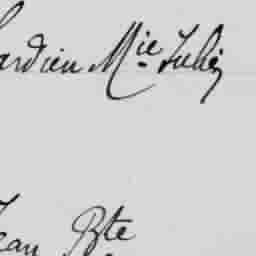 ardien Mie Julie
Jean Bte